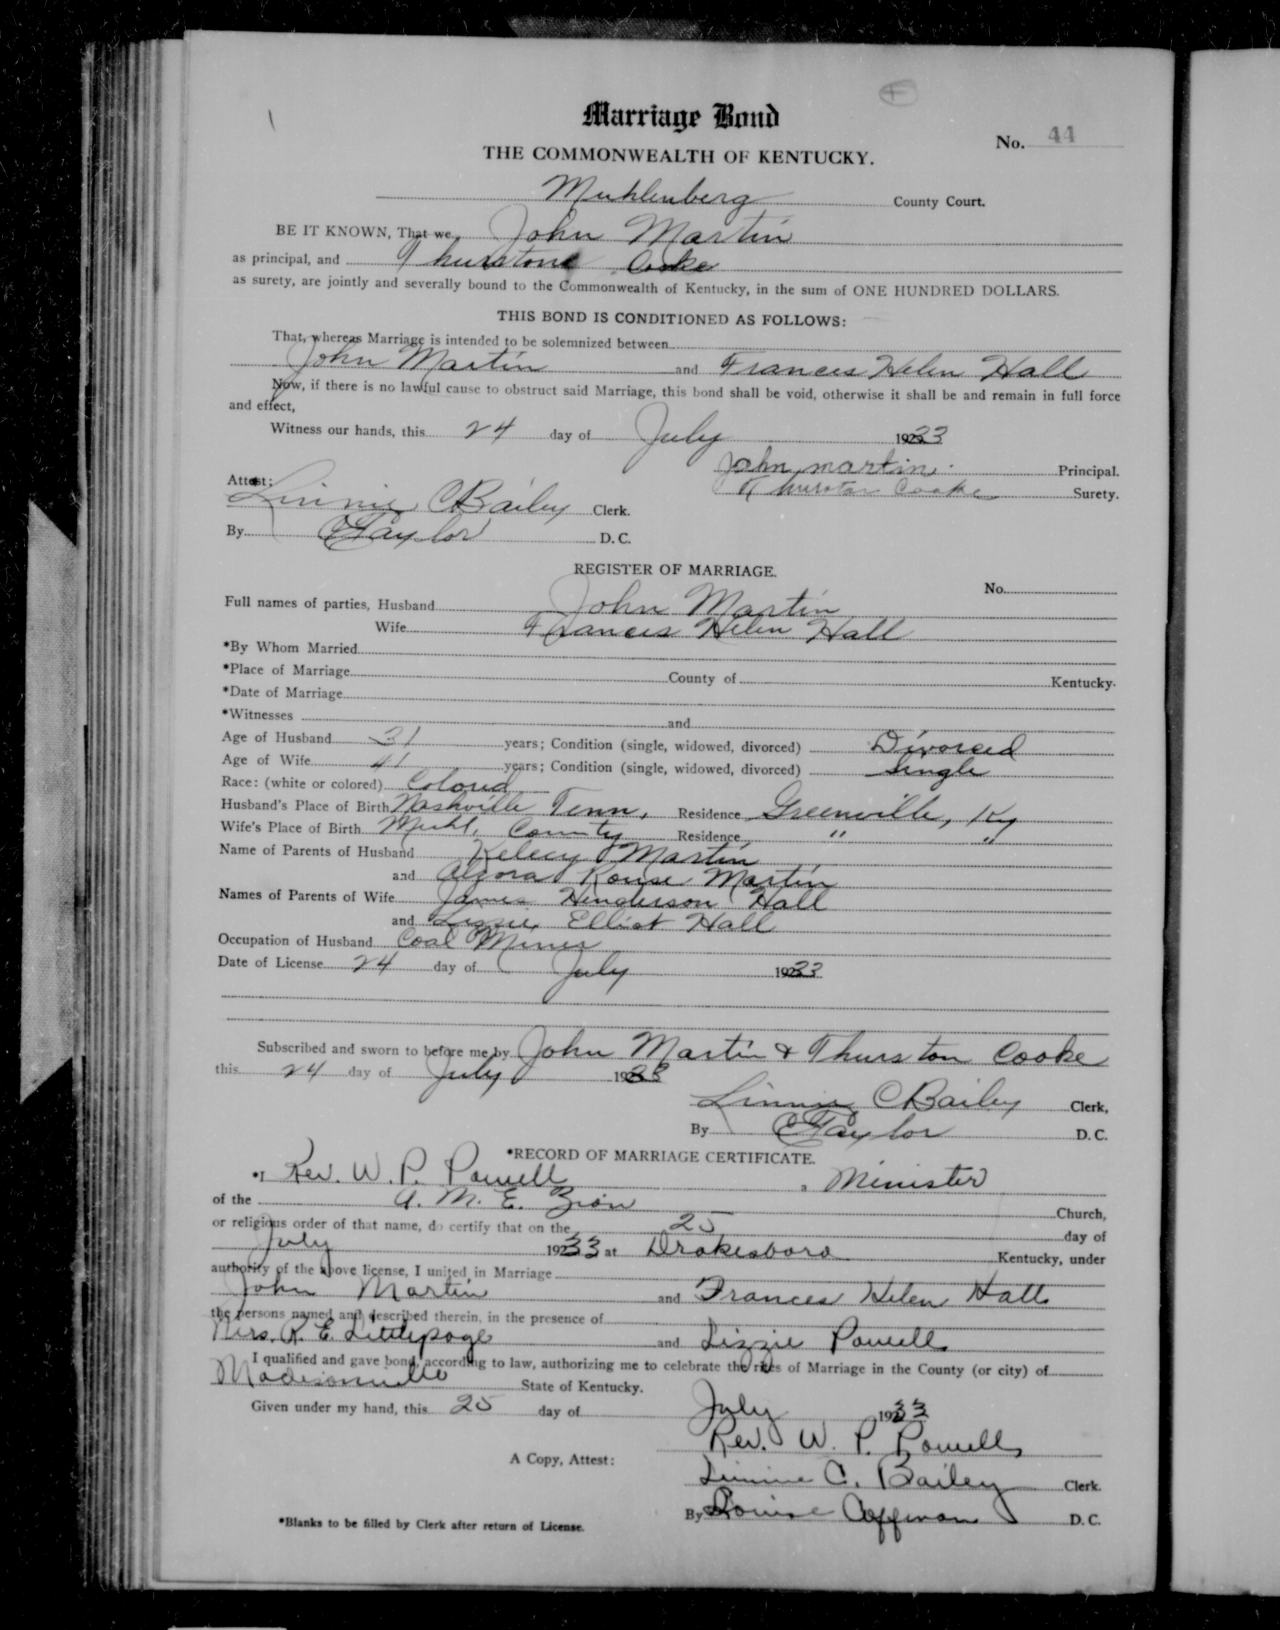 Marriage Bond
No. 44
THE COMMONWEALTH OF KENTUCKY.
Muhlenberg County Court.
BE IT KNOWN, That we, John Martin
as principal, and Thurstone Cooke
as surety, are jointly and severally bound to the Commonwealth of Kentucky, in the sum of ONE HUNDRED DOLLARS.
THIS BOND IS CONDITIONED AS FOLLOWS:
That, whereas Marriage is intended to be solemnized between
John Martin and Frances Helen Hall
Now, if there is no lawful cause to obstruct said Marriage, this bond shall be void, otherwise it shall be and remain in full force
and effect,
Witness our hands, this 24 day of July 1933
John Martin Principal.
Attest: Thurston Cooke Surety.
Linnie C Bailey Clerk.
By C Taylor D. C.
REGISTER OF MARRIAGE.
No.
Full names of parties, Husband John Martin
Wife Frances Helen Hall
*By Whom Married
*Place of Marriage County of Kentucky.
*Date of Marriage
*Witnesses and
Age of Husband 31 years; Condition (single, widowed, divorced) Divorced
Age of Wife 41 years; Condition (single, widowed, divorced) Single
Race: (white or colored) Colored
Husband's Place of Birth Nashville Tenn, Residence Greenville, Ky
Wife's Place of Birth Muhl. County Residence " "
Name of Parents of Husband Martin
and Rouse Martin
Names of Parents of Wife James Henderson Hall
and Lizzie Elliot Hall
Occupation of Husband Coal Miner
Date of License 24 day of July 1933
Subscribed and sworn to before me by John Martin & Thurston Cooke
this 24 day of July 1933
Linnie C Bailey Clerk,
By C Taylor D. C.
*RECORD OF MARRIAGE CERTIFICATE.
*I Rev. W. P. Powell, a Minister
of the A. M. E. Zion Church,
or religious order of that name, do certify that on the 25 day of
July 1933 at Drakesboro Kentucky, under
authority of the above license, I united in Marriage
John Martin and Frances Helen Hall
the persons named and described therein, in the presence of
Mrs. R. E. Littlepage and Lizzie Powell
I qualified and gave bond, according to law, authorizing me to celebrate the rites of Marriage in the County (or city) of
Madisonville State of Kentucky.
Given under my hand, this 25 day of July 1933
Rev. W. P. Powell
A Copy, Attest: Linnie C. Bailey Clerk.
By Louise Coffman D. C.
*Blanks to be filled by Clerk after return of License.